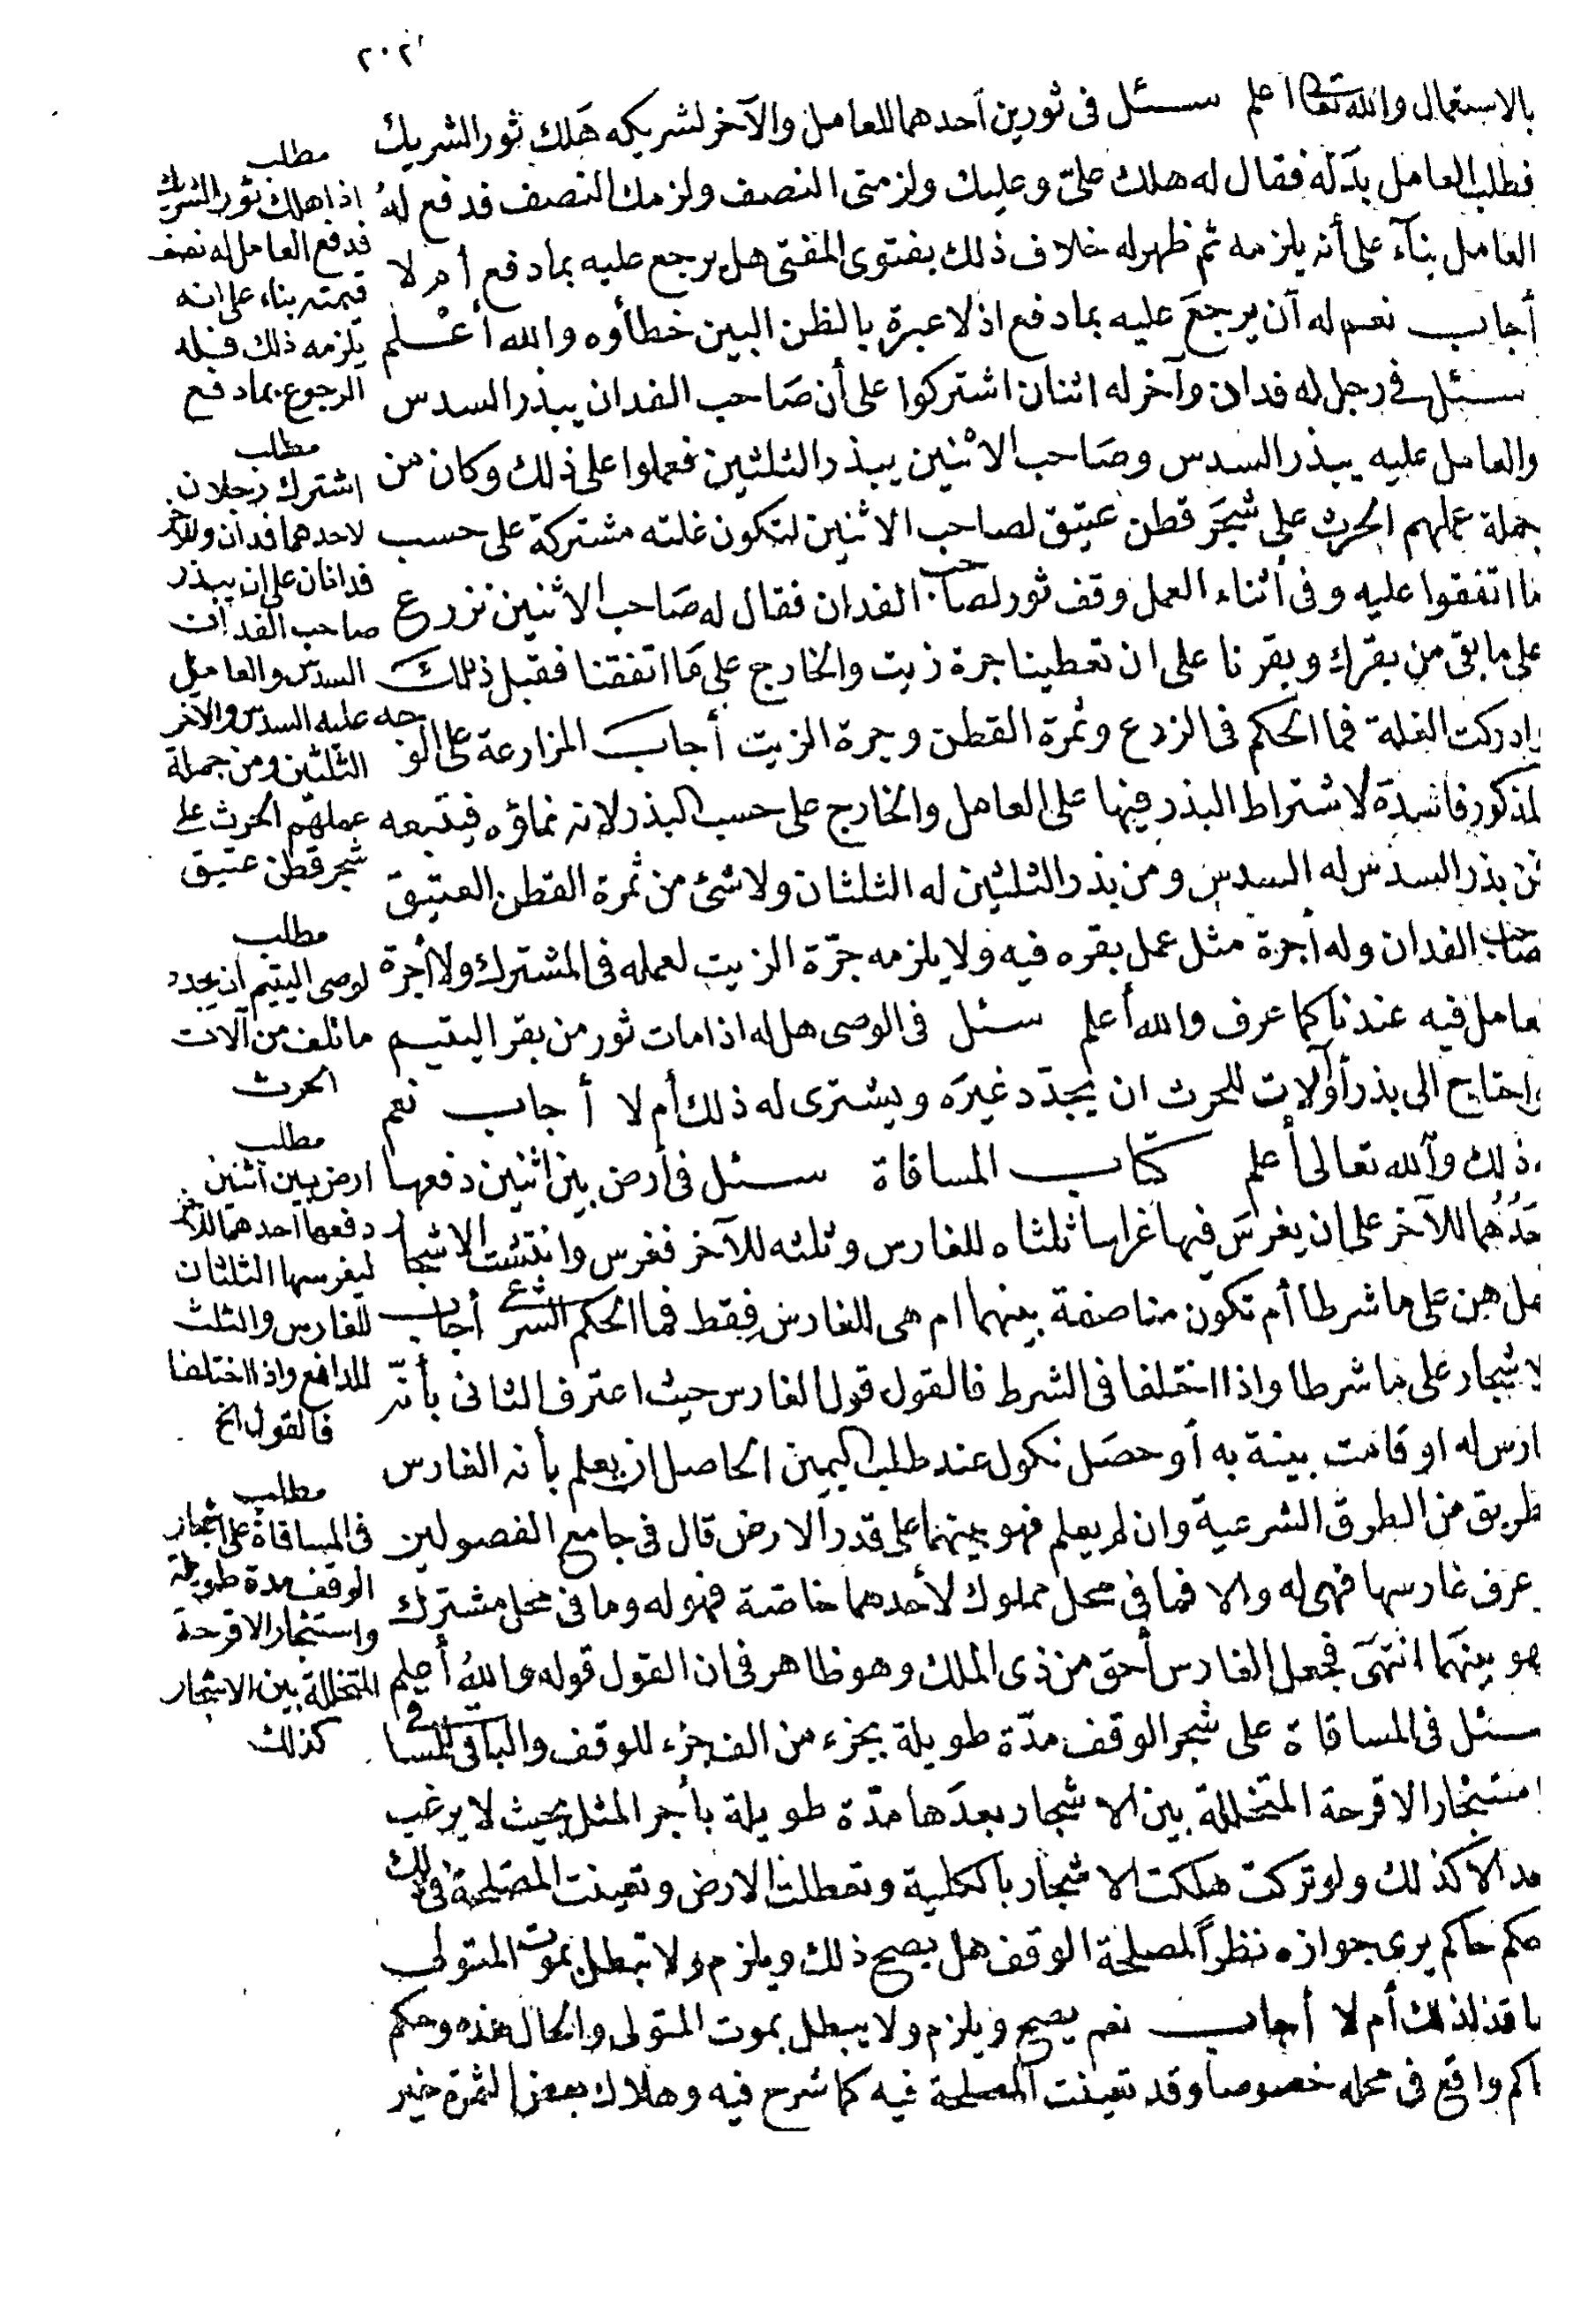 ٢٠٢
بالاستعمال والله تعالى اعلم سئل فى ثورين أحدهما للعامل والآخر لشريكه هَلك ثور الشريك
فطلب العامل بدَله فقال له هلك علىّ وعليك ولزمنى النصف ولزمك النصف فدفع لهُ
العامل بنآء على أنه يلزمه ثم ظهر له خلاف ذلك بفتوى المفتى هل يرجع عليه بما دفع أم لا
أجاب نعم له أن يرجعَ عليه بما دفع اذ لا عبرة بالظن البين خطأوه والله أعْلم
سئل فى رجل له فدان وآخر له اثنان اشتركوا على أن صَاحب الفدان يبذر السدس
والعامل عليه يبذر السدس وصَاحب الاثنين يبذر الثلثين فعملوا على ذلك وكان من
جملة عملهم الحرث على شجَر قطن عتيق لصاحب الاثنين لتكون غلته مشتركة على حسب
ما اتفقوا عليه وفى أثناء العمل وقف ثور لصاحب الفدان فقال له صَاحب الاثنين نزرع
على ما بقى من بقرك وبقرنا على ان تعطينا جرة زيت والخارج على مَا اتفقنا فقبل ذلك
وادركت الغلة فما الحكم فى الزرع وثمرة القطن وجرة الزيت أجاب المزارعة على الوجه
المذكور فاسدَة لاشتراط البذر فيها على العامل والخارج على حسب البذر لانه نماؤه فيتبعه
فمن بذر السدس له السدس ومن بذر الثلثين له الثلثان ولا شئ من ثمرة القطن العتيق
لصاحب الفدان وله أجرة مثل عمل بقره فيه ولا يلزمه جرّة الزيت لعمله فى المشترك ولا أجرة
لعامل فيه عندنا كما عرف والله أعلم سئل فى الوصى هل له اذا مات ثور من بقر اليتيم
واحتاج الى بذر أو آلات للحرث ان يجدّد غيرَه ويشترى له ذلك أم لا أجاب نعم
له ذلك والله تعالى أعلم كتاب المساقاة سئل فى أرض بين اثنين دفعها
أحَدُهُما للآخر على ان يغرسَ فيها غراسا ثلثاه للغارس وثلثه للآخر فغرس وانتشت الاشجار
هل هن على ما شرطا أم تكون مناصفة بينهما ام هى للغارس فقط فما الحكم الشرعى أجاب
الاشجار على ما شرطا واذا اختلفا فى الشرط فالقول قول الغارس حيث اعترف الثانى بأنّه
غارس له او قامت بينة به أو حصَل نكول عند طلب اليمين الحاصل ان يعلم بأنه الغارس
بطريق من الطرق الشرعية وان لم يعلم فهو بينهما على قدر الارض قال فى جامع الفصولين
لو عرف غارسها فهى له والا فما فى محل مملوك لأحدهما خاصّة فهو له وما فى محل مشترك
فهو بينهَما انتهَى فجعل الغارس أحق من ذى الملك وهو ظاهر فى ان القول قوله والله أعلم
سئل فى المساقاة على شجر الوقف مدّة طويلة بجزء من الف جزء للوقف والباقى للمساقى
واستئجار الاقرحة المتخللة بين الاشجار بعدَها مدّة طويلة بأجر المثل بحيث لا يرغب
أحد الا كذلك ولو تركت هلكت الاشجار بالكلية وتعطلت الارض وتعينت المصَلحة فى ذلك
وحكم حاكم يرى جوازه نظرًا لمصلحة الوقف هل يصح ذلك ويلزم ولا تبطل بموت المتولى
العاقد لذلك أم لا أجاب نعم يصح ويلزم ولا يبطل بموت المتولى والحال هذه وحكم
الحاكم واقع فى محله خصوصا وقد تعينت المصلحة فيه كما شرح فيه وهلاك بعض الثمرة خير
مطلب
اذا هلك ثور الشريك
فدفع العامل له نصف
قيمته بناء على انه
يلزمه ذلك فله
الرجوع بما دفع
مطلب
اشترك رجلان
لاحدهما فدان وللآخر
فدانان على ان يبذر
صاحب الفدان
السدس والعامل
عليه السدس والآخر
الثلثين ومن جملة
عملهم الحرث على
شجر قطن عتيق
مطلب
لوصى اليتيم ان يجدد
ما تلف من آلات
الحرث
مطلب
ارض بين اثنين
دفعها أحدهما للآخر
ليغرسها الثلثان
للغارس والثلث
للدافع واذا اختلفا
فالقول الخ
مطلب
فى المساقاة على اشجار
الوقف مدة طويلة
واستئجار الاقرحة
المتخللة بين الاشجار
كذلك